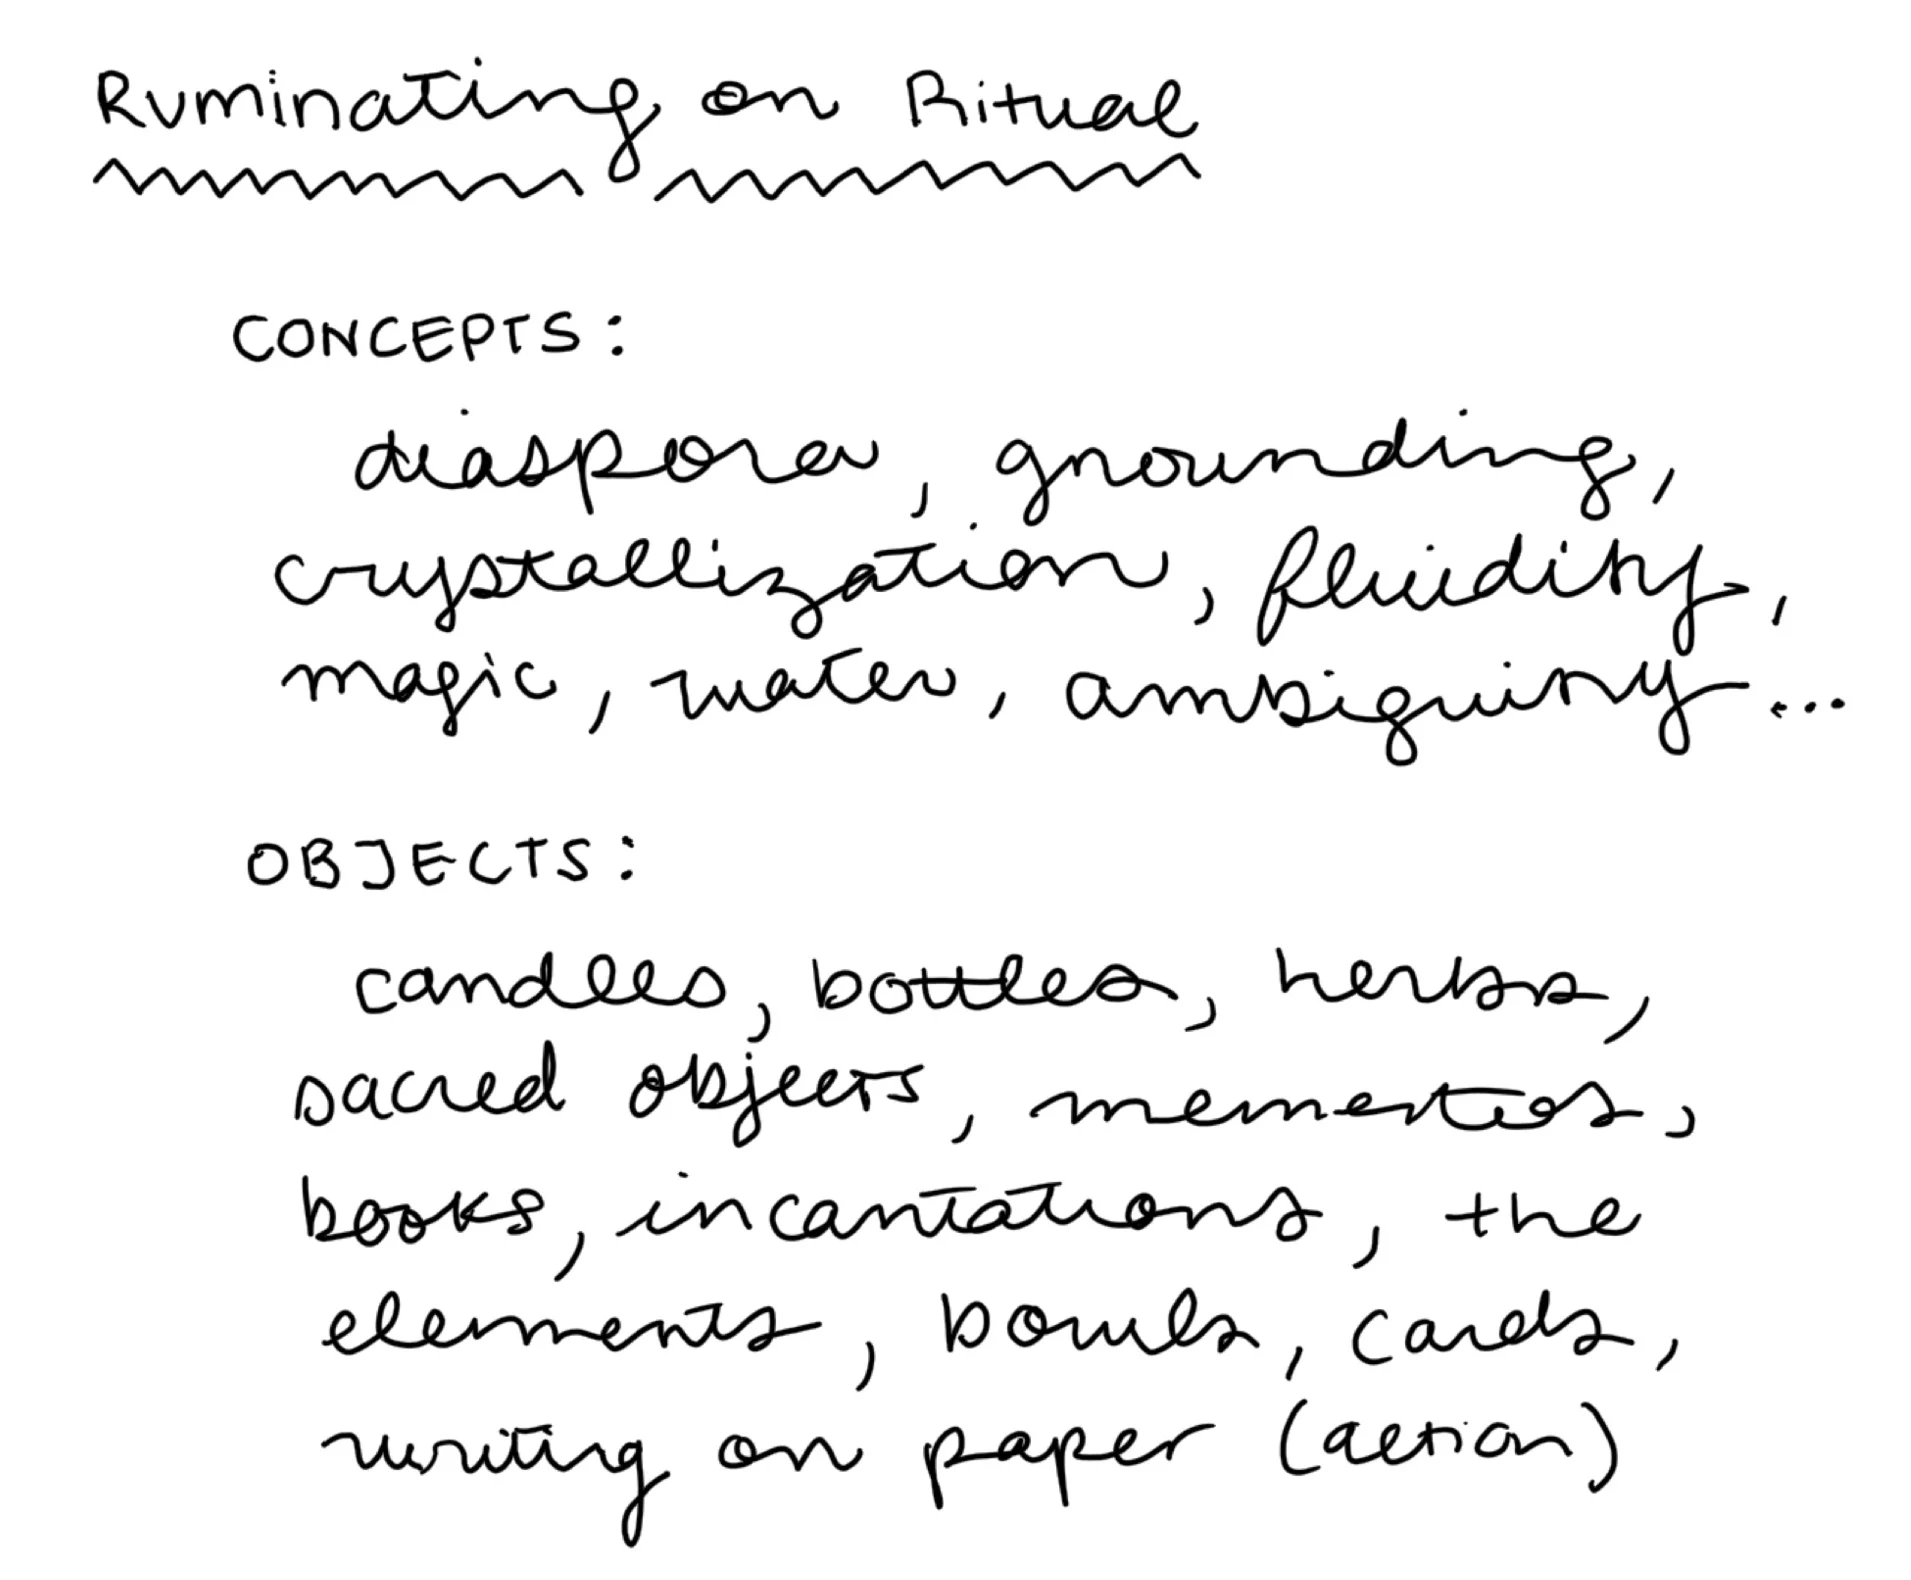 Ruminating on Ritual
CONCEPTS:
diaspora, grounding,
crystallization, fluidity,
magic, water, ambiguity...
OBJECTS:
candles, bottles, herbs,
sacred objects, mementos,
books, incantations, the
elements, bowls, cards,
writing on paper (action)